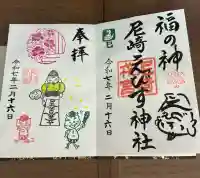 福の神
尼崎えびす神社
令和七年二月十六日
奉拝
令和七年二月十六日